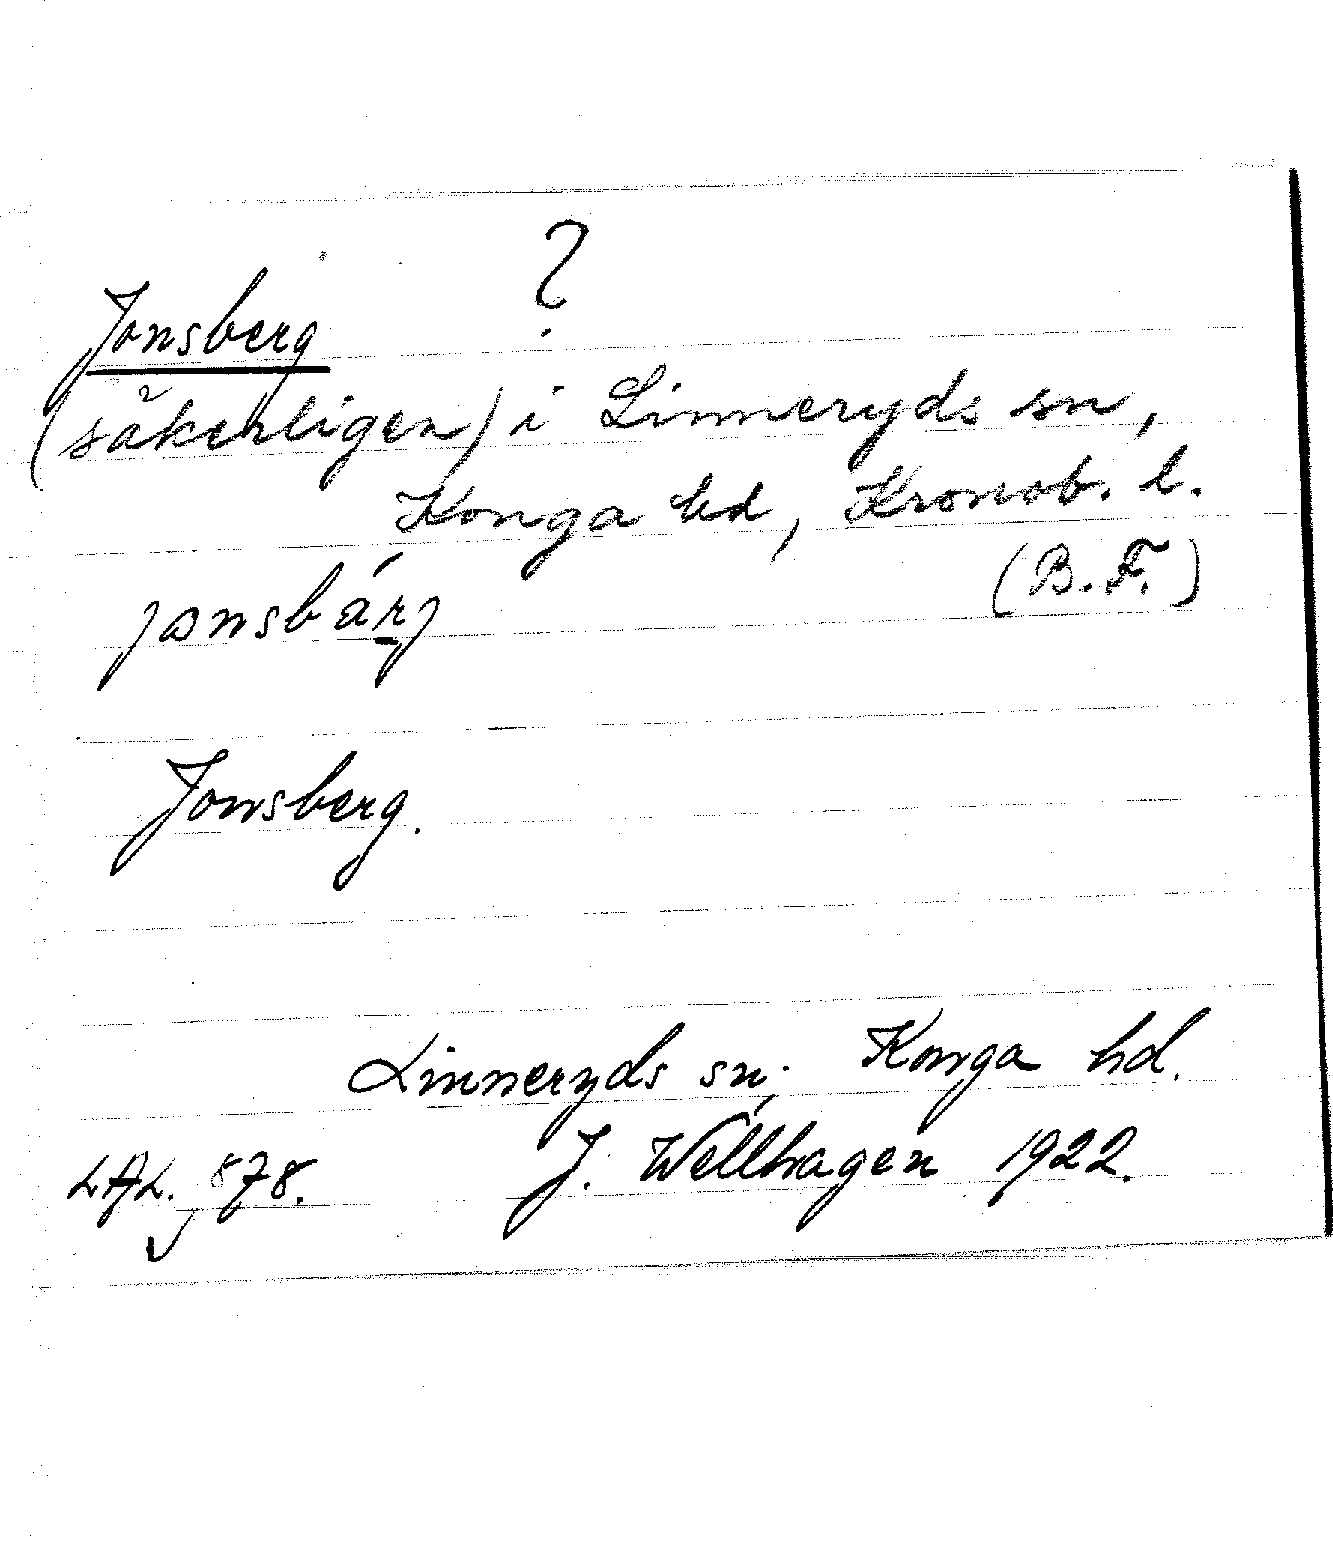 ?
Jonsberg
(säkerligen) i Linneryds sn,
Konga hd, Kronob. l.
(B. F.)
jonsbárj
Jonsberg.
Linneryds sn; Konga hd.
LAL. 878. J. Wellhagen 1922.